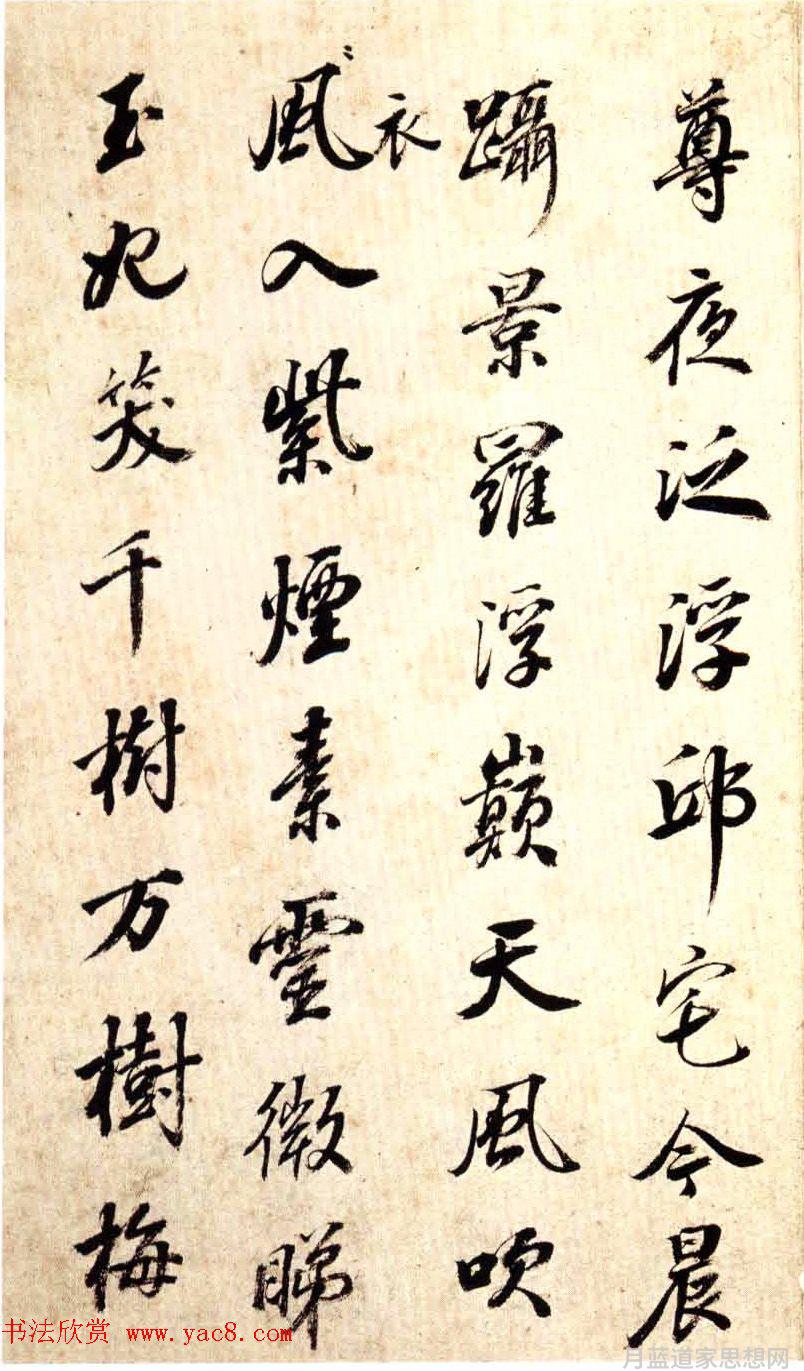 尊夜泛浮邱宅今晨
躡景羅浮巔天風吹
衣
風入紫煙素靈微睇
玉妃笑千樹万樹梅
书法欣赏 www.yac8.com
月蓝道家思想网